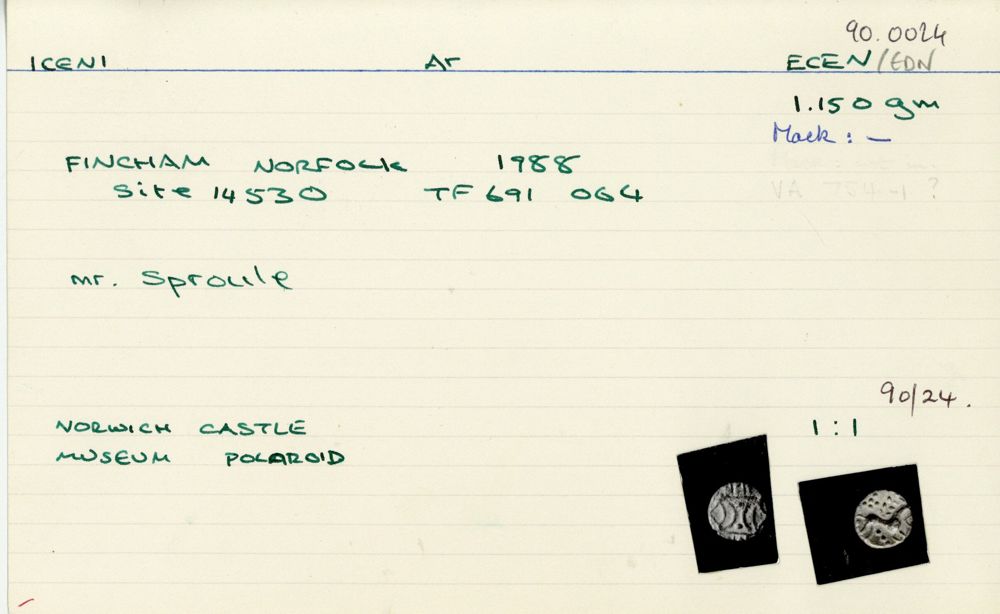 90.0024
ICENI Ar ECEN/EDN
1.150 gm
Mack : —
FINCHAM NORFOLK 1988
VA 754-1 ?
Site 14530 TF 691 064
mr. Sproule
90/24.
NORWICH CASTLE 1:1
MUSEUM POLAROID